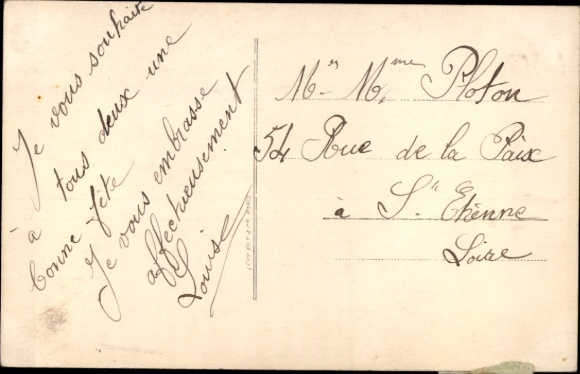 Je vous souhaite
à tous deux une
bonne fête
Je vous embrasse
affectueusement
Louise
Mr Mme Ploton
54 Rue de la Paix
à St Etienne
Loire